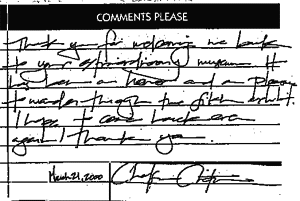 COMMENTS PLEASE
Thank you for welcoming me back
to your extraordinary museum. It
has been an honor and a pleasure
to wander through the fifth exhibit.
I hope to come back
again! Thank you.
March 21, 2000